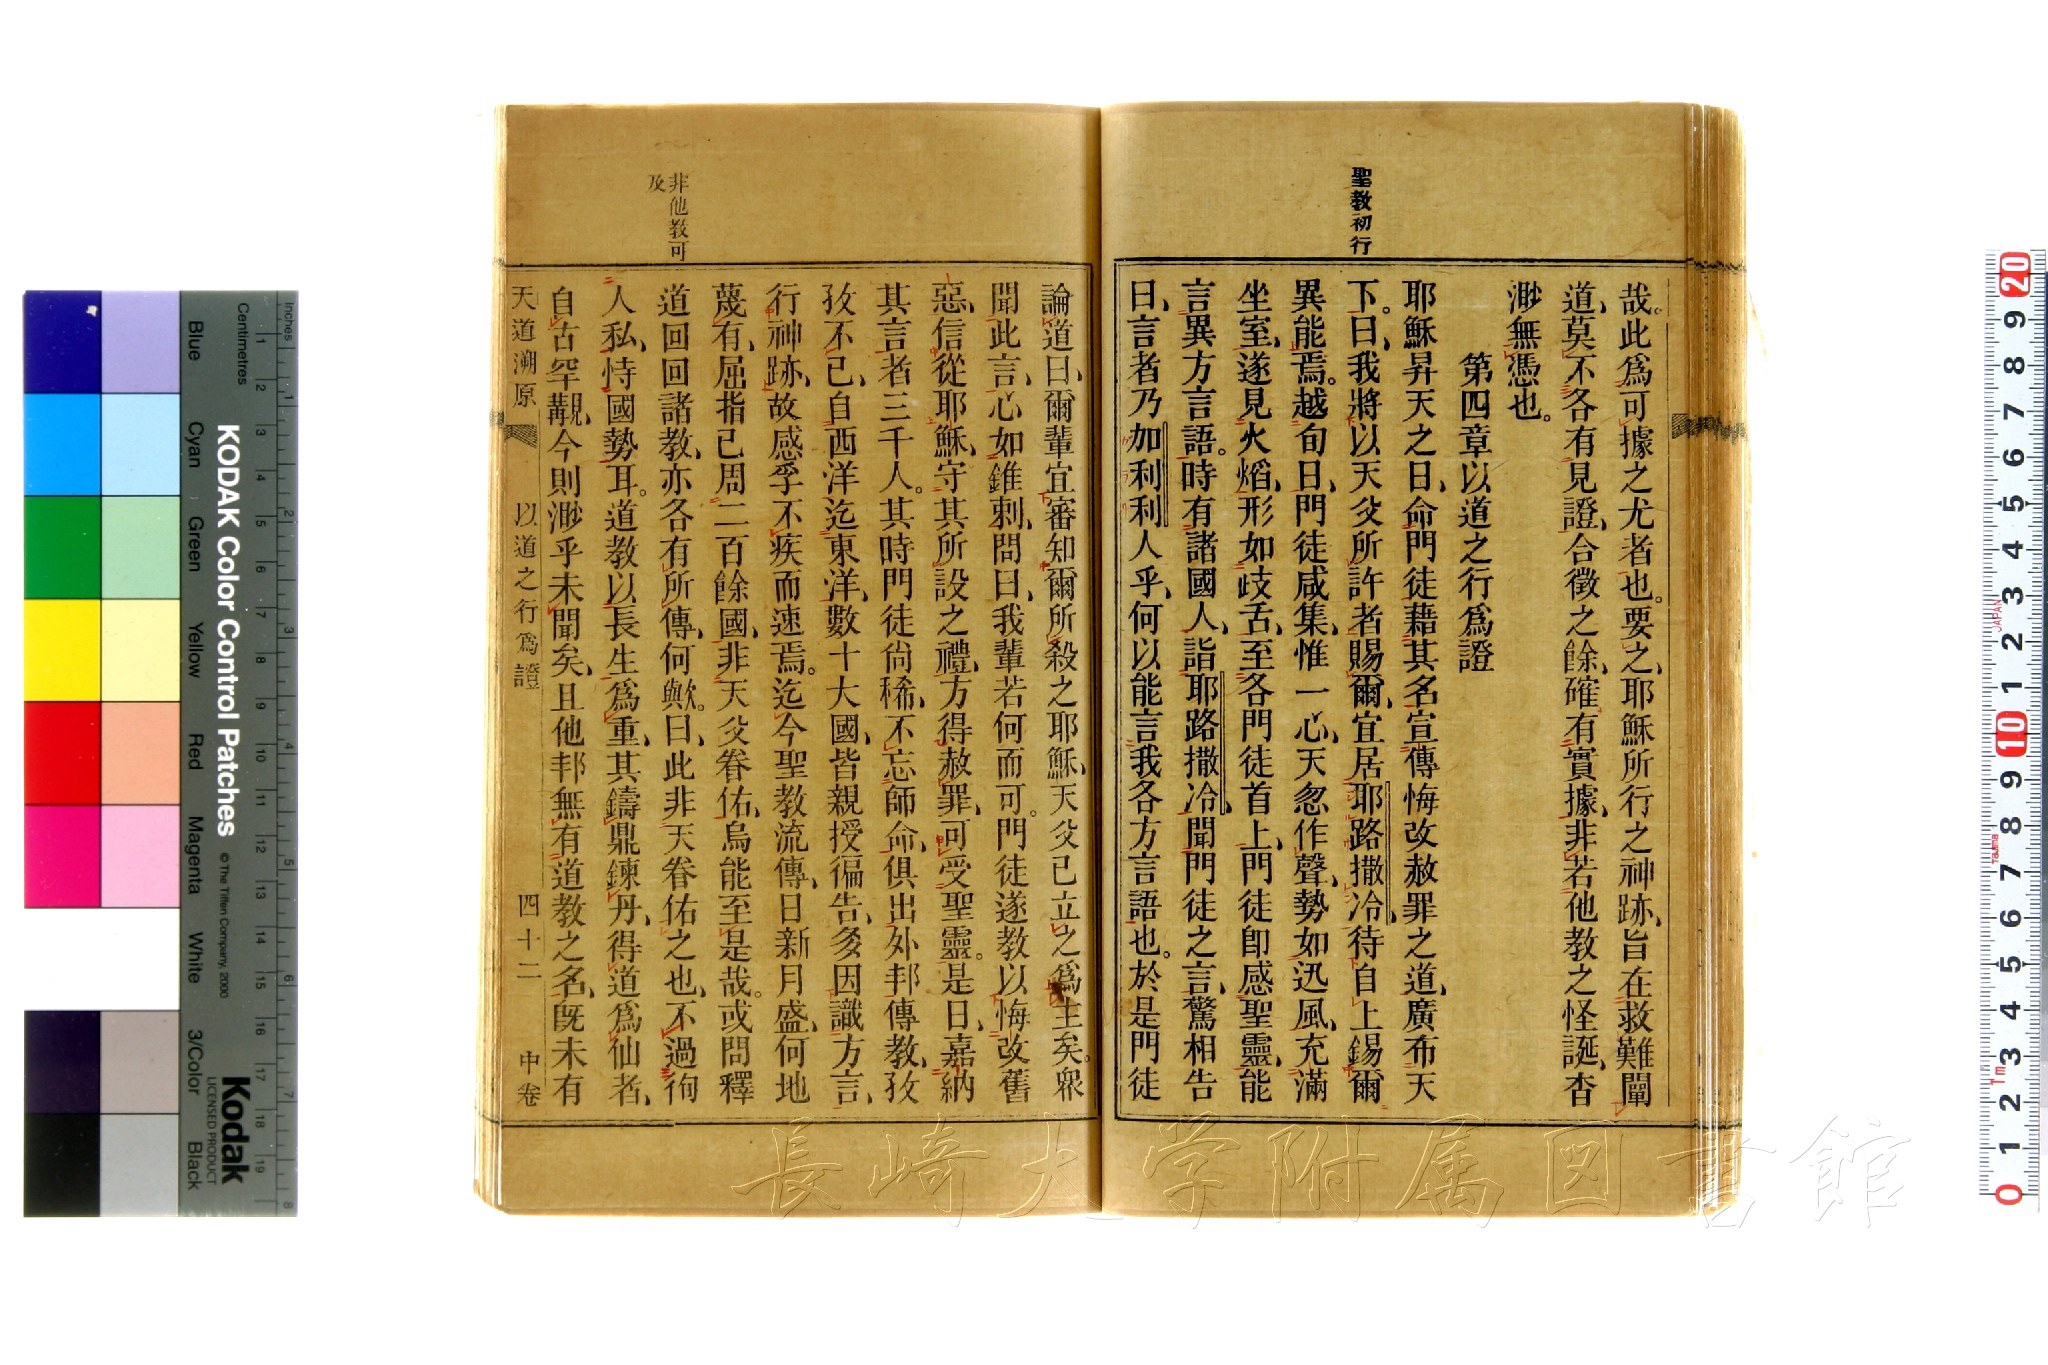 聖教初行
哉。此爲可據之尤者也。要之、耶穌所行之神跡、旨在救難闡
道、莫不各有見證、合徵之餘、確有實據、非若他教之怪誕、杳
渺無憑也。
第四章以道之行爲證
耶穌昇天之日、命門徒藉其名宣傳悔改赦罪之道、廣布天
下。曰、我將以天父所許者賜爾、宜居耶路撒冷、待自上錫爾
異能焉。越旬日、門徒咸集、惟一心、天忽作聲、勢如迅風、充滿
坐室、遂見火熖、形如歧舌、至各門徒首上、門徒卽感聖靈、能
言異方言語。時有諸國人、詣耶路撒冷、聞門徒之言、驚相告
曰、言者乃加利利人乎、何以能言我各方言語也。於是門徒
論道曰、爾輩宜審知爾所殺之耶穌、天父已立之爲主矣。衆
聞此言、心如錐刺、問曰、我輩若何而可。門徒遂教以悔改舊
惡、信從耶穌、守其所設之禮、方得赦罪、可受聖靈。是日、嘉納
其言者三千人。其時門徒尙稀、不忘師命、俱出外邦傳教、孜
孜不已、自西洋迄東洋、數十大國、皆親授徧告、多因識方言、
行神跡、故感孚不疾而速焉。迄今聖教流傳、日新月盛、何地
蔑有、屈指已周二百餘國、非天父眷佑、烏能至是哉。或問釋
道回回諸教、亦各有所傳、何歟。曰、此非天眷佑之也、不過徇
人私、恃國勢耳。道教以長生爲重、其鑄鼎鍊丹、得道爲仙者、
自古罕覯、今則渺乎未聞矣、且他邦無有道教之名、旣未有
非他教可
及
天道溯原
以道之行爲證
四十二
中卷
KODAK Color Control Patches
© The Tiffen Company, 2000
Kodak
LICENSED PRODUCT
Inches
Centimetres
Blue
Cyan
Green
Yellow
Red
Magenta
White
3/Color
Black
長崎大学附属図書館
JAPAN
Tajima